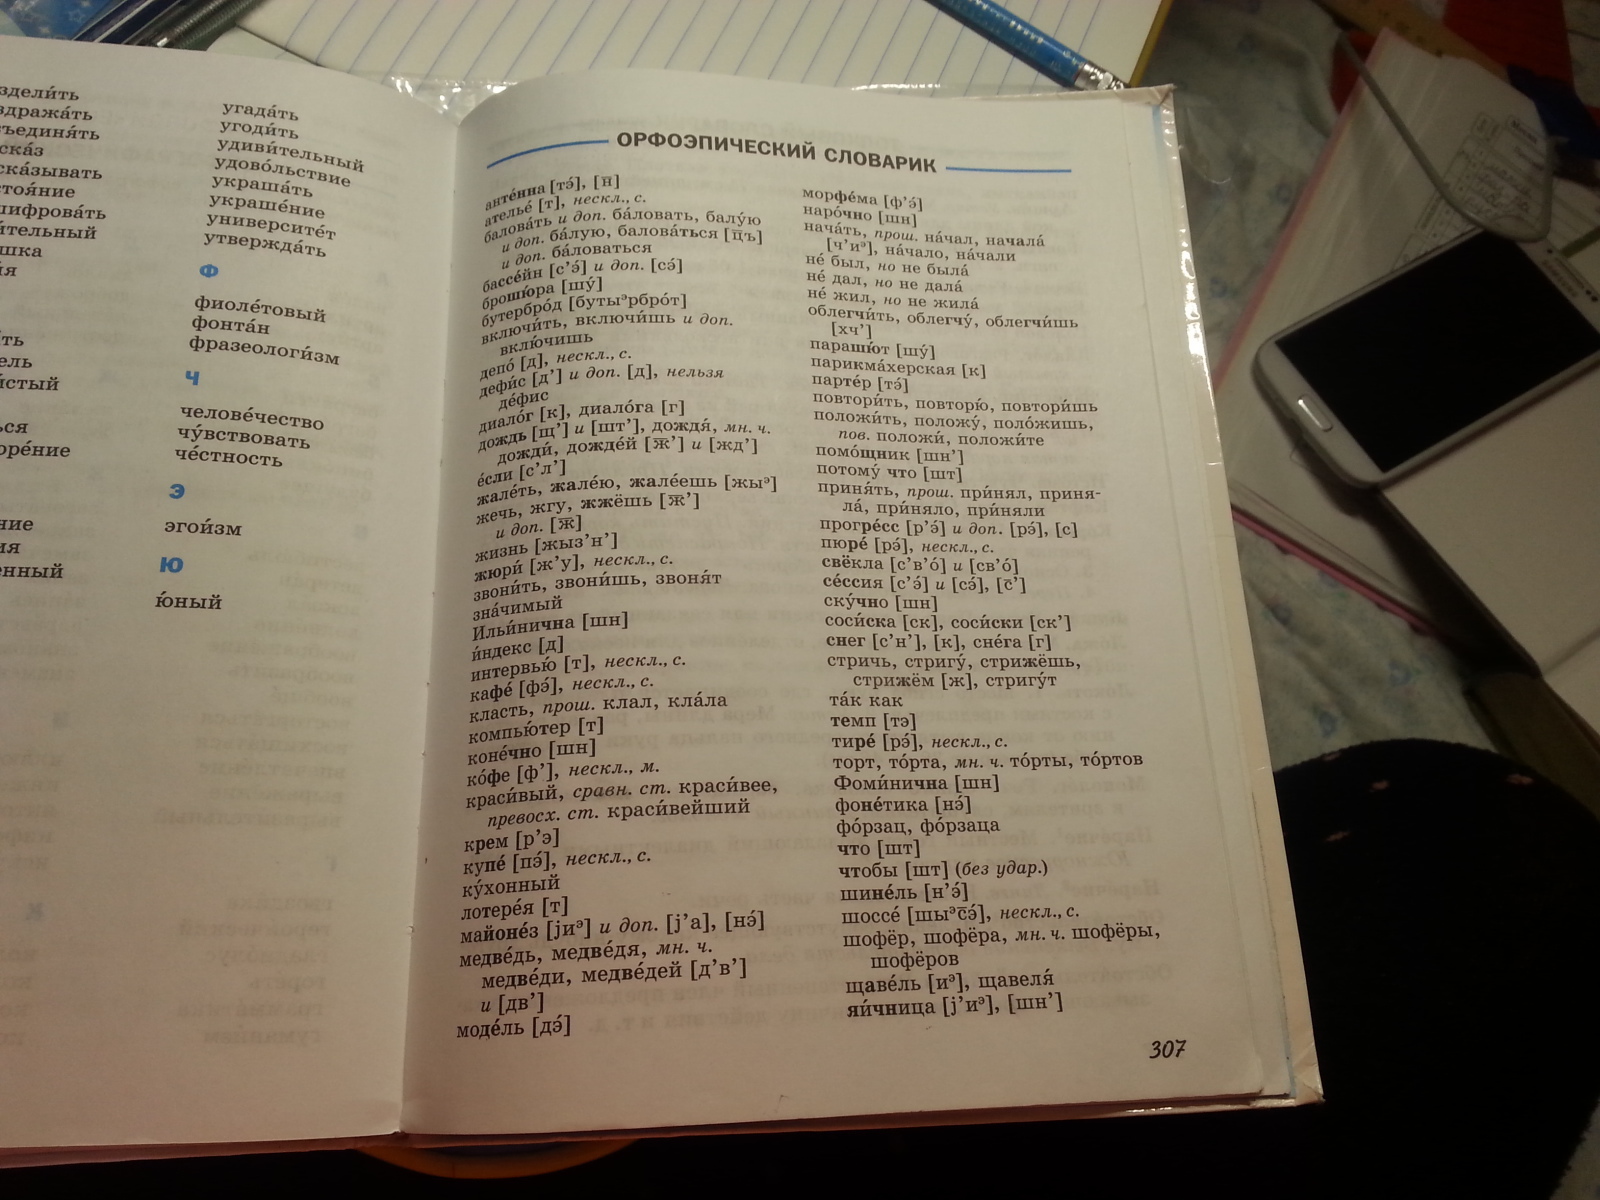 угада́ть
угоди́ть
удиви́тельный
удово́льствие
украша́ть
украше́ние
университе́т
утвержда́ть
Ф
фиоле́товый
фонта́н
фразеологи́зм
Ч
челове́чество
чу́вствовать
че́стность
Э
эгои́зм
Ю
ю́ный
ОРФОЭПИЧЕСКИЙ СЛОВАРИК
анте́нна [тэ́], [н̅]
ателье́ [т], нескл., с.
балова́ть и доп. ба́ловать, балу́ю
и доп. ба́лую, балова́ться [ц̅ъ]
и доп. ба́ловаться
бассе́йн [с’э́] и доп. [сэ́]
брошю́ра [шу́]
бутербро́д [бутыэрбро́т]
включи́ть, включи́шь и доп.
вклю́чишь
депо́ [д], нескл., с.
дефи́с [д’] и доп. [д], нельзя
де́фис
диало́г [к], диало́га [г]
дождь [щ’] и [шт’], дождя́, мн. ч.
дожди́, дожде́й [ж̅’] и [жд’]
е́сли [с’л’]
жале́ть, жале́ю, жале́ешь [жыэ]
жечь, жгу, жжёшь [ж̅’]
и доп. [ж̅]
жизнь [жыз’н’]
жюри́ [ж’у], нескл., с.
звони́ть, звони́шь, звоня́т
зна́чимый
Ильи́нична [шн]
и́ндекс [д]
интервью́ [т], нескл., с.
кафе́ [фэ́], нескл., с.
класть, прош. клал, кла́ла
компью́тер [т]
коне́чно [шн]
ко́фе [ф’], нескл., м.
краси́вый, сравн. ст. краси́вее,
превосх. ст. краси́вейший
крем [р’э]
купе́ [пэ́], нескл., с.
ку́хонный
лотере́я [т]
майоне́з [jиэ] и доп. [j’а], [нэ́]
медве́дь, медве́дя, мн. ч.
медве́ди, медве́дей [д’в’]
и [дв’]
моде́ль [дэ́]
морфе́ма [ф’э́]
наро́чно [шн]
нача́ть, прош. на́чал, начала́
[ч’иэ], на́чало, на́чали
не́ был, но не была́
не́ дал, но не дала́
не́ жил, но не жила́
облегчи́ть, облегчу́, облегчи́шь
[хч’]
парашю́т [шу́]
парикма́херская [к]
парте́р [тэ́]
повтори́ть, повторю́, повтори́шь
положи́ть, положу́, поло́жишь,
пов. положи́, положи́те
помо́щник [шн’]
потому́ что [шт]
приня́ть, прош. при́нял, приня-
ла́, при́няло, при́няли
прогре́сс [р’э́] и доп. [рэ́], [с]
пюре́ [рэ́], нескл., с.
свёкла [с’в’о́] и [св’о́]
се́ссия [с’э́] и [сэ́], [с̅’]
ску́чно [шн]
соси́ска [ск], соси́ски [ск’]
снег [с’н’], [к], сне́га [г]
стричь, стригу́, стрижёшь,
стрижём [ж], стригу́т
та́к как
темп [тэ]
тире́ [рэ́], нескл., с.
торт, то́рта, мн. ч. то́рты, то́ртов
Фоми́нична [шн]
фоне́тика [нэ́]
фо́рзац, фо́рзаца
что [шт]
чтобы [шт] (без удар.)
шине́ль [н’э́]
шоссе́ [шыэс̅э́], нескл., с.
шофёр, шофёра, мн. ч. шофёры,
шофёров
щаве́ль [иэ], щавеля́
яи́чница [j’иэ], [шн’]
307